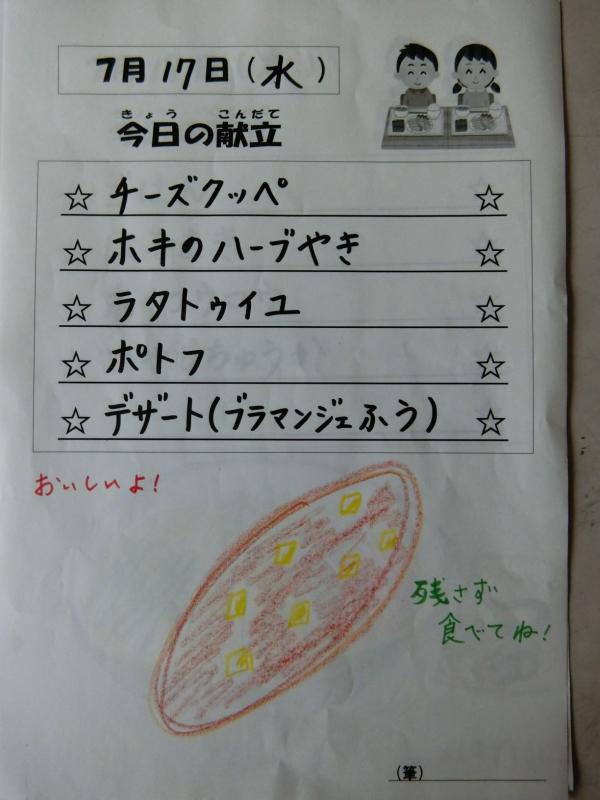 7月17日(水)
きょう こんだて
今日の献立
☆ チーズクッペ ☆
☆ ホキのハーブやき ☆
☆ ラタトゥイユ ☆
☆ ポトフ ☆
☆ デザート(ブラマンジェふう) ☆
おいしいよ!
残さず
食べてね!
(筆)